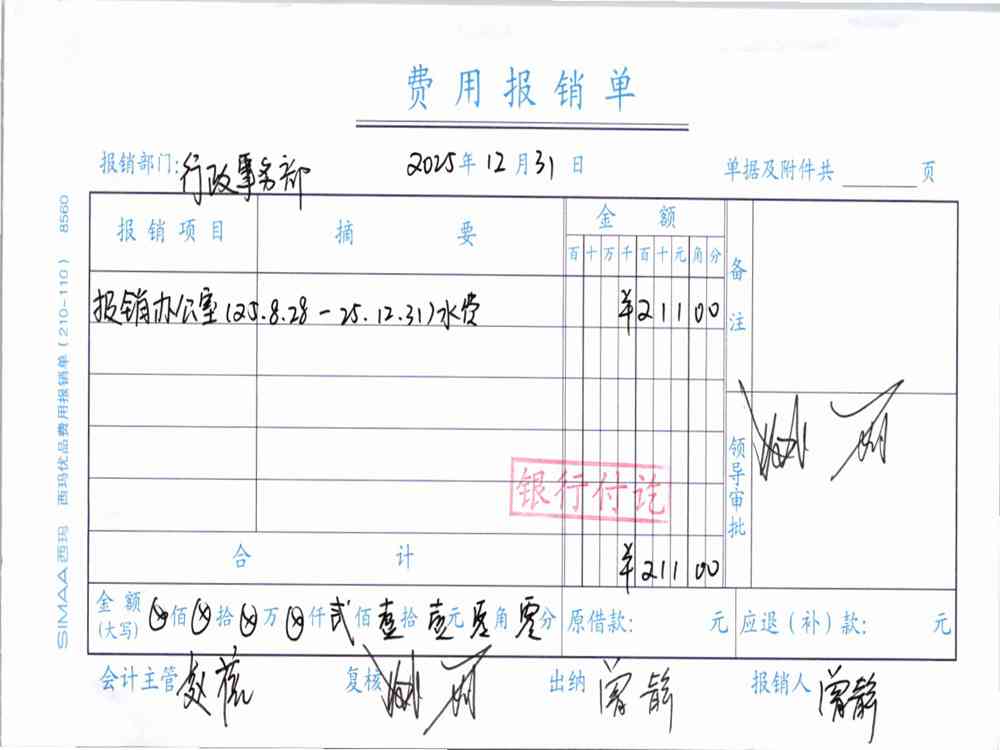 费用报销单
报销部门: 行政事务部 2025年12月31日 单据及附件共 页
报销项目 摘要 金额 备注
百十万千百十元角分
报销办公室(25.8.28-25.12.31)水费 ¥21100
领导审批
银行付讫
合计 ¥21100
金额(大写) ⊗佰⊗拾⊗万⊗仟贰佰壹拾壹元零角零分 原借款: 元 应退(补)款: 元
会计主管 复核 出纳 曾静 报销人 曾静
SIMAA西玛 西玛优品费用报销单(210-110) 8560